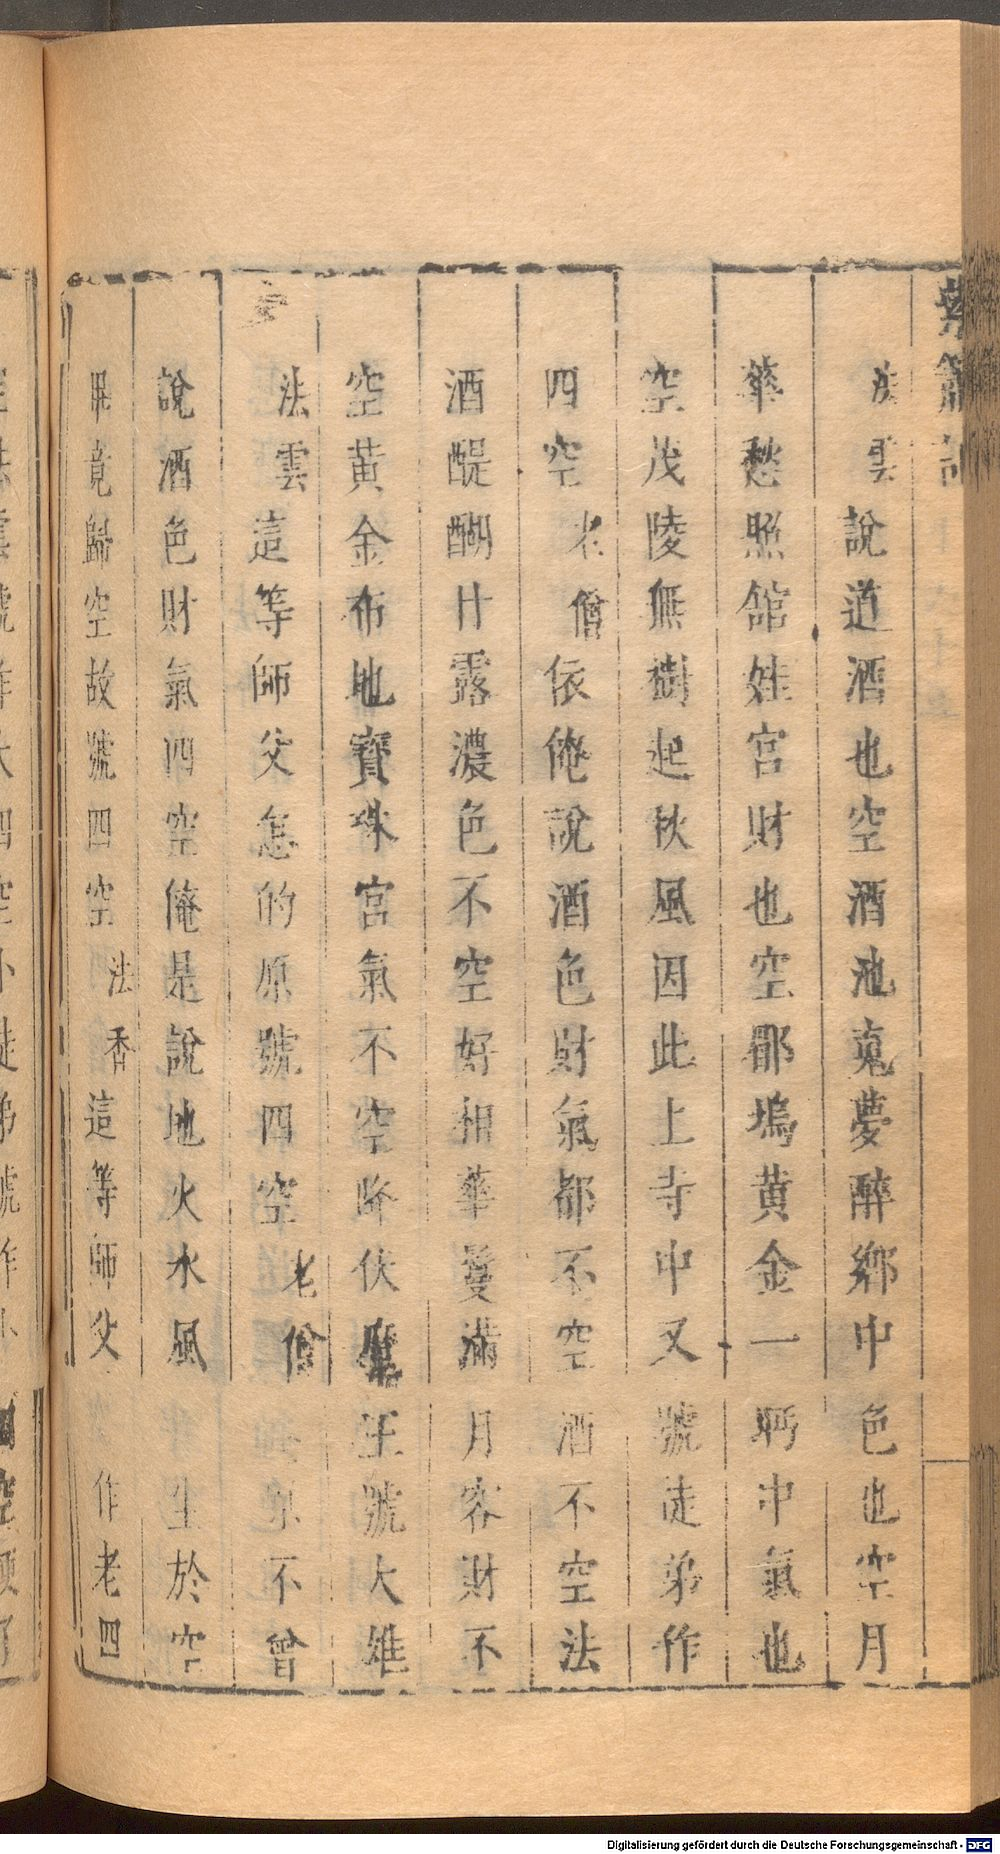 紫簫記
法雲 說道酒也空酒池䖏夢醉鄉中色也空月
華愁照舘娃宮財也空郿塢黃金一眄中氣也
空茂陵無樹起秋風因此上寺中又號徒弟作
四空 老僧 依俺說酒色財氣都不空酒不空法
酒醍醐甘露濃色不空好相華鬘滿月容財不
空黃金布地寶珠宮氣不空降伏魔王號大雄
法雲 這等師父怎的原號四空 老僧 不曾
說酒色財氣四空俺是說地火水風生於空
畢竟歸空故號四空 法香 這等師父 作老四
Digitalisierung gefördert durch die Deutsche Forschungsgemeinschaft - DFG